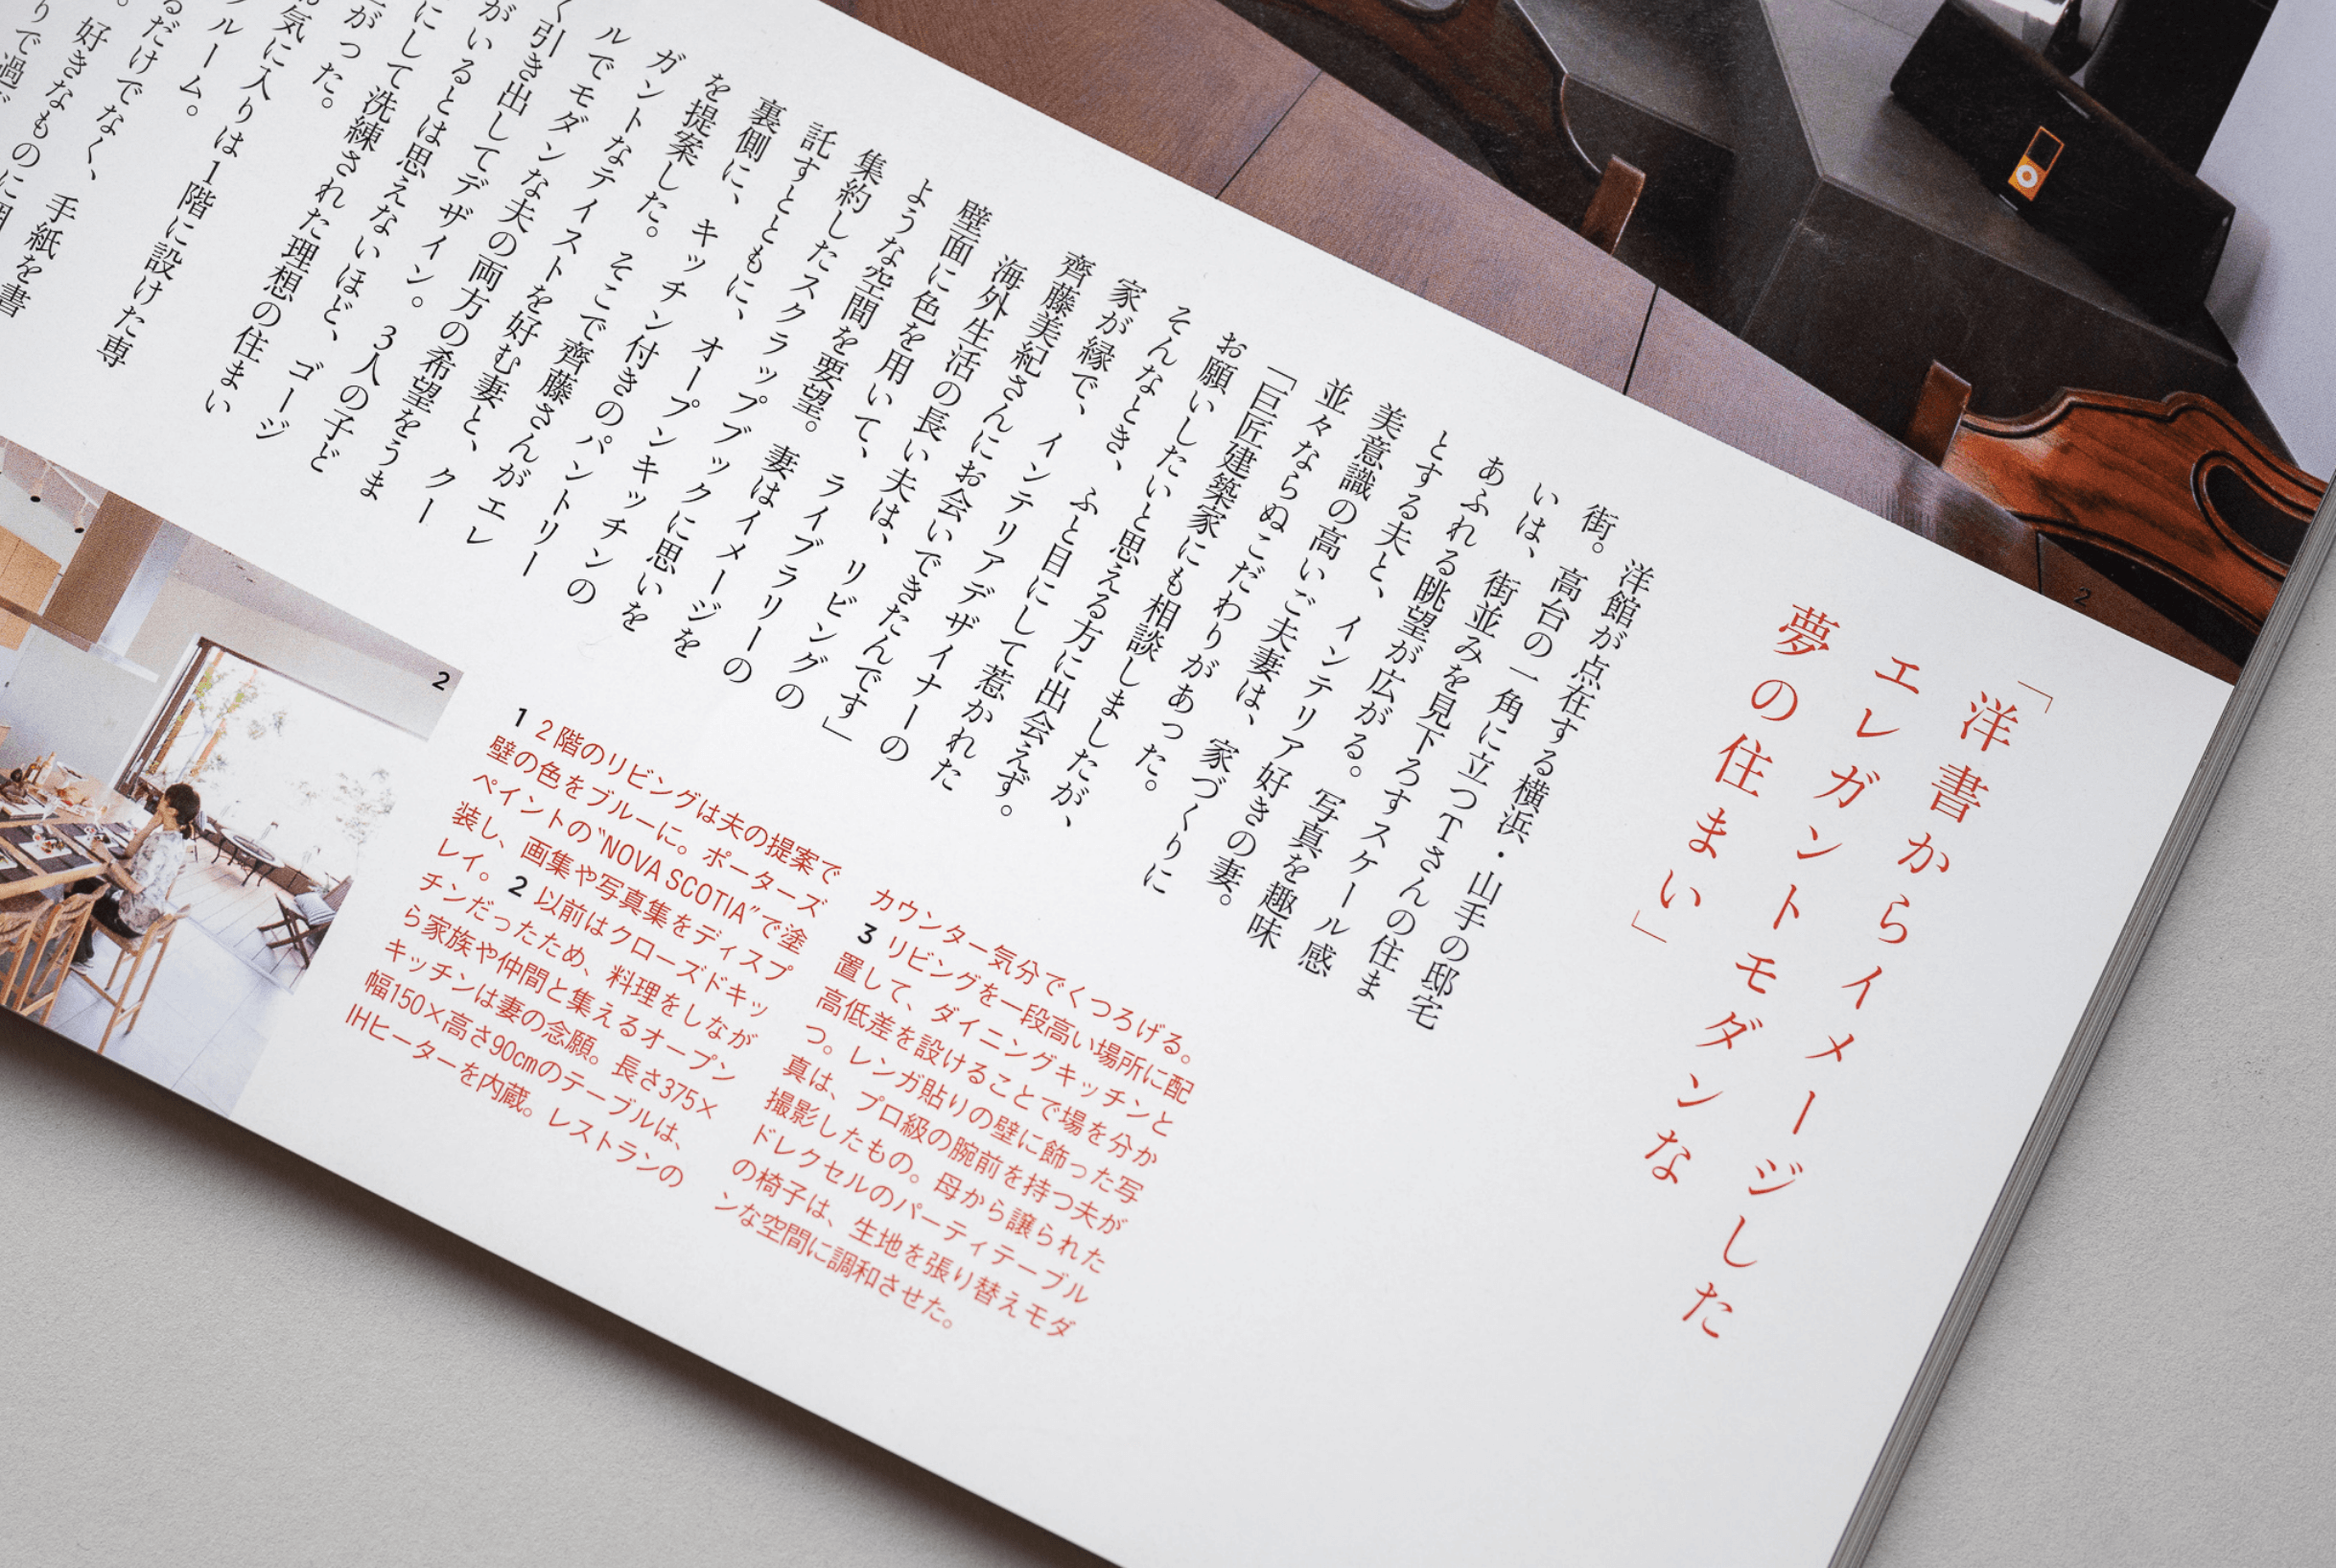 「洋書からイメージした
エレガントモダンな
夢の住まい」
洋館が点在する横浜・山手の邸宅
街。高台の一角に立つTさんの住ま
いは、街並みを見下ろすスケール感
あふれる眺望が広がる。写真を趣味
とする夫と、インテリア好きの妻。
美意識の高いご夫妻は、家づくりに
並々ならぬこだわりがあった。
「巨匠建築家にも相談しましたが、
お願いしたいと思える方に出会えず。
そんなとき、ふと目にして惹かれた
家が縁で、インテリアデザイナーの
齊藤美紀さんにお会いできたんです」
海外生活の長い夫は、リビングの
壁面に色を用いて、ライブラリーの
ような空間を要望。妻はイメージを
集約したスクラップブックに思いを
託すとともに、オープンキッチンの
裏側に、キッチン付きのパントリー
を提案した。そこで齊藤さんがエレ
ガントなテイストを好む妻と、クー
ルでモダンな夫の両方の希望をうま
く引き出してデザイン。3人の子ど
がいるとは思えないほど、ゴージ
にして洗練された理想の住まい
がった。
お気に入りは1階に設けた専
ルーム。
るだけでなく、手紙を書
好きなものに
りで過
2
2
1 2階のリビングは夫の提案で
壁の色をブルーに。ポーターズ
ペイントの“NOVA SCOTIA”で塗
装し、画集や写真集をディスプ
レイ。2 以前はクローズドキッ
チンだったため、料理をしなが
ら家族や仲間と集えるオープン
キッチンは妻の念願。長さ375×
幅150×高さ90cmのテーブルは、
IHヒーターを内蔵。レストランの
カウンター気分でくつろげる。
3 リビングを一段高い場所に配
置して、ダイニングキッチンと
高低差を設けることで場を分か
つ。レンガ貼りの壁に飾った写
真は、プロ級の腕前を持つ夫が
撮影したもの。母から譲られた
ドレクセルのパーティテーブル
の椅子は、生地を張り替えモダ
ンな空間に調和させた。